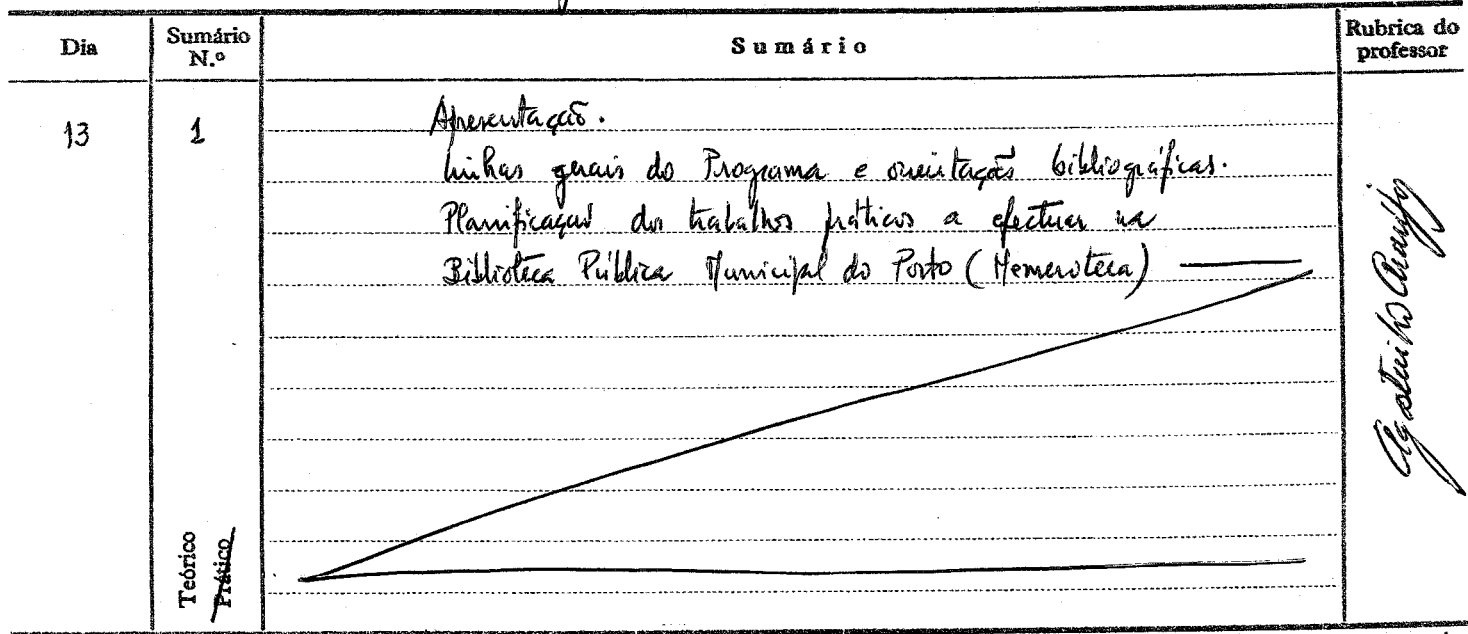 Dia
Sumário N.º
Sumário
Rubrica do professor
13
1
Apresentação.
Linhas gerais do Programa e orientações bibliográficas.
Planificação dos trabalhos práticos a efectuar na
Biblioteca Pública Municipal do Porto (Hemeroteca)
Teórico
Prático
Agostinho Araújo